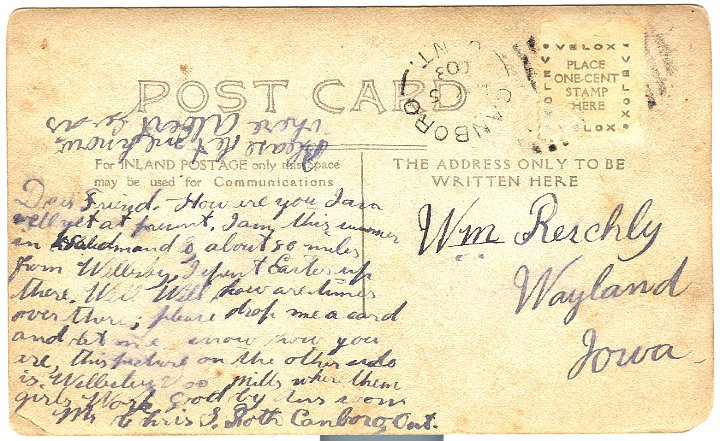 POST CARD
CANBORO
ONT.
VELOX
PLACE
ONE-CENT
STAMP
HERE
VELOX
VELOX
VELOX
Please let me know
where Albert
For INLAND POSTAGE only this Space
may be used for Communications
THE ADDRESS ONLY TO BE
WRITTEN HERE
Dear Friend. How are you I am
well yet at I am this summer
in and is about 80 miles
from I Easter up
there. Well Will how are times
over there, please drop me a card
and let me know how you
are, this picture on the other side
is Mills where them
girls Work Good by
Mr Chris S. Roth Canboro, Ont.
Wm Reschly
Wayland
Iowa